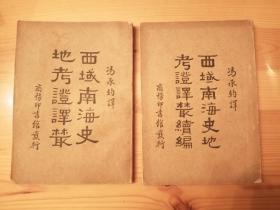 馮承鈞譯
西域南海史
地考證譯叢
商務印書館發行
馮承鈞譯
西域南海史地
考證譯叢續編
商務印書館發行